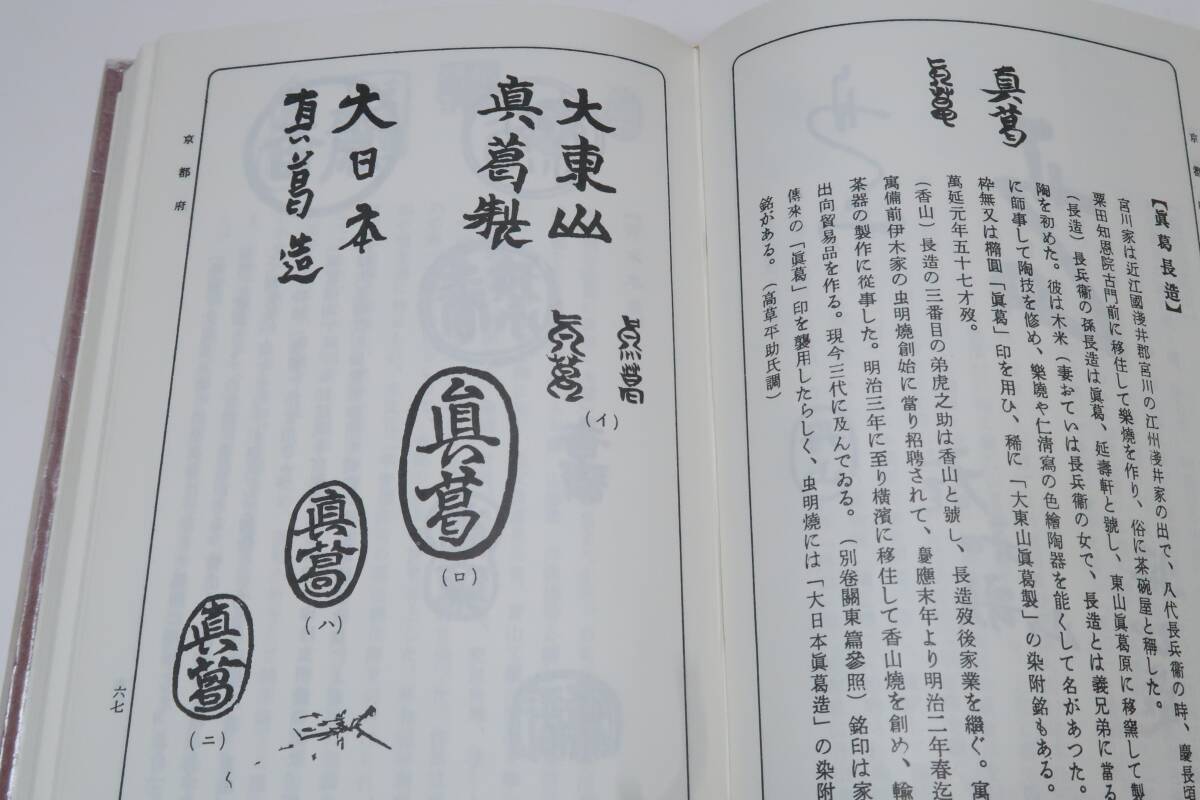 京都府
真葛
【眞葛長造】
宮川家は近江國淺井郡宮川の江州淺井家の出で、八代長兵衞の時、慶長頃
粟田知恩院古門前に移住して樂燒を作り、俗に茶碗屋と稱した。
（長造）長兵衞の孫長造は眞葛、延壽軒と號し、東山眞葛原に移窯して製
陶を初めた。彼は木米（妻おていは長兵衞の女で、長造とは義兄弟に當る
に師事して陶技を修め、樂燒や仁淸寫の色繪陶器を能くして名があつた。
枠無又は橢圓「眞葛」印を用ひ、稀に「大東山眞葛製」の染附銘もある。
萬延元年五十七才歿。
（香山）長造の三番目の弟虎之助は香山と號し、長造歿後家業を繼ぐ。寓
寓備前伊木家の虫明燒創始に當り招聘されて、慶應末年より明治二年春迄
茶器の製作に從事した。明治三年に至り橫濱に移住して香山燒を創め、輸
出向貿易品を作る。現今三代に及んでゐる。（別卷關東篇參照）銘印は家
傳來の「眞葛」印を襲用したらしく、虫明燒には「大日本眞葛造」の染附
銘がある。（高草平助氏調）
大東山
真葛製
大日本
真葛造
(イ)
真葛
(ロ)
真葛
(ハ)
真葛
(ニ)
京都府
六七